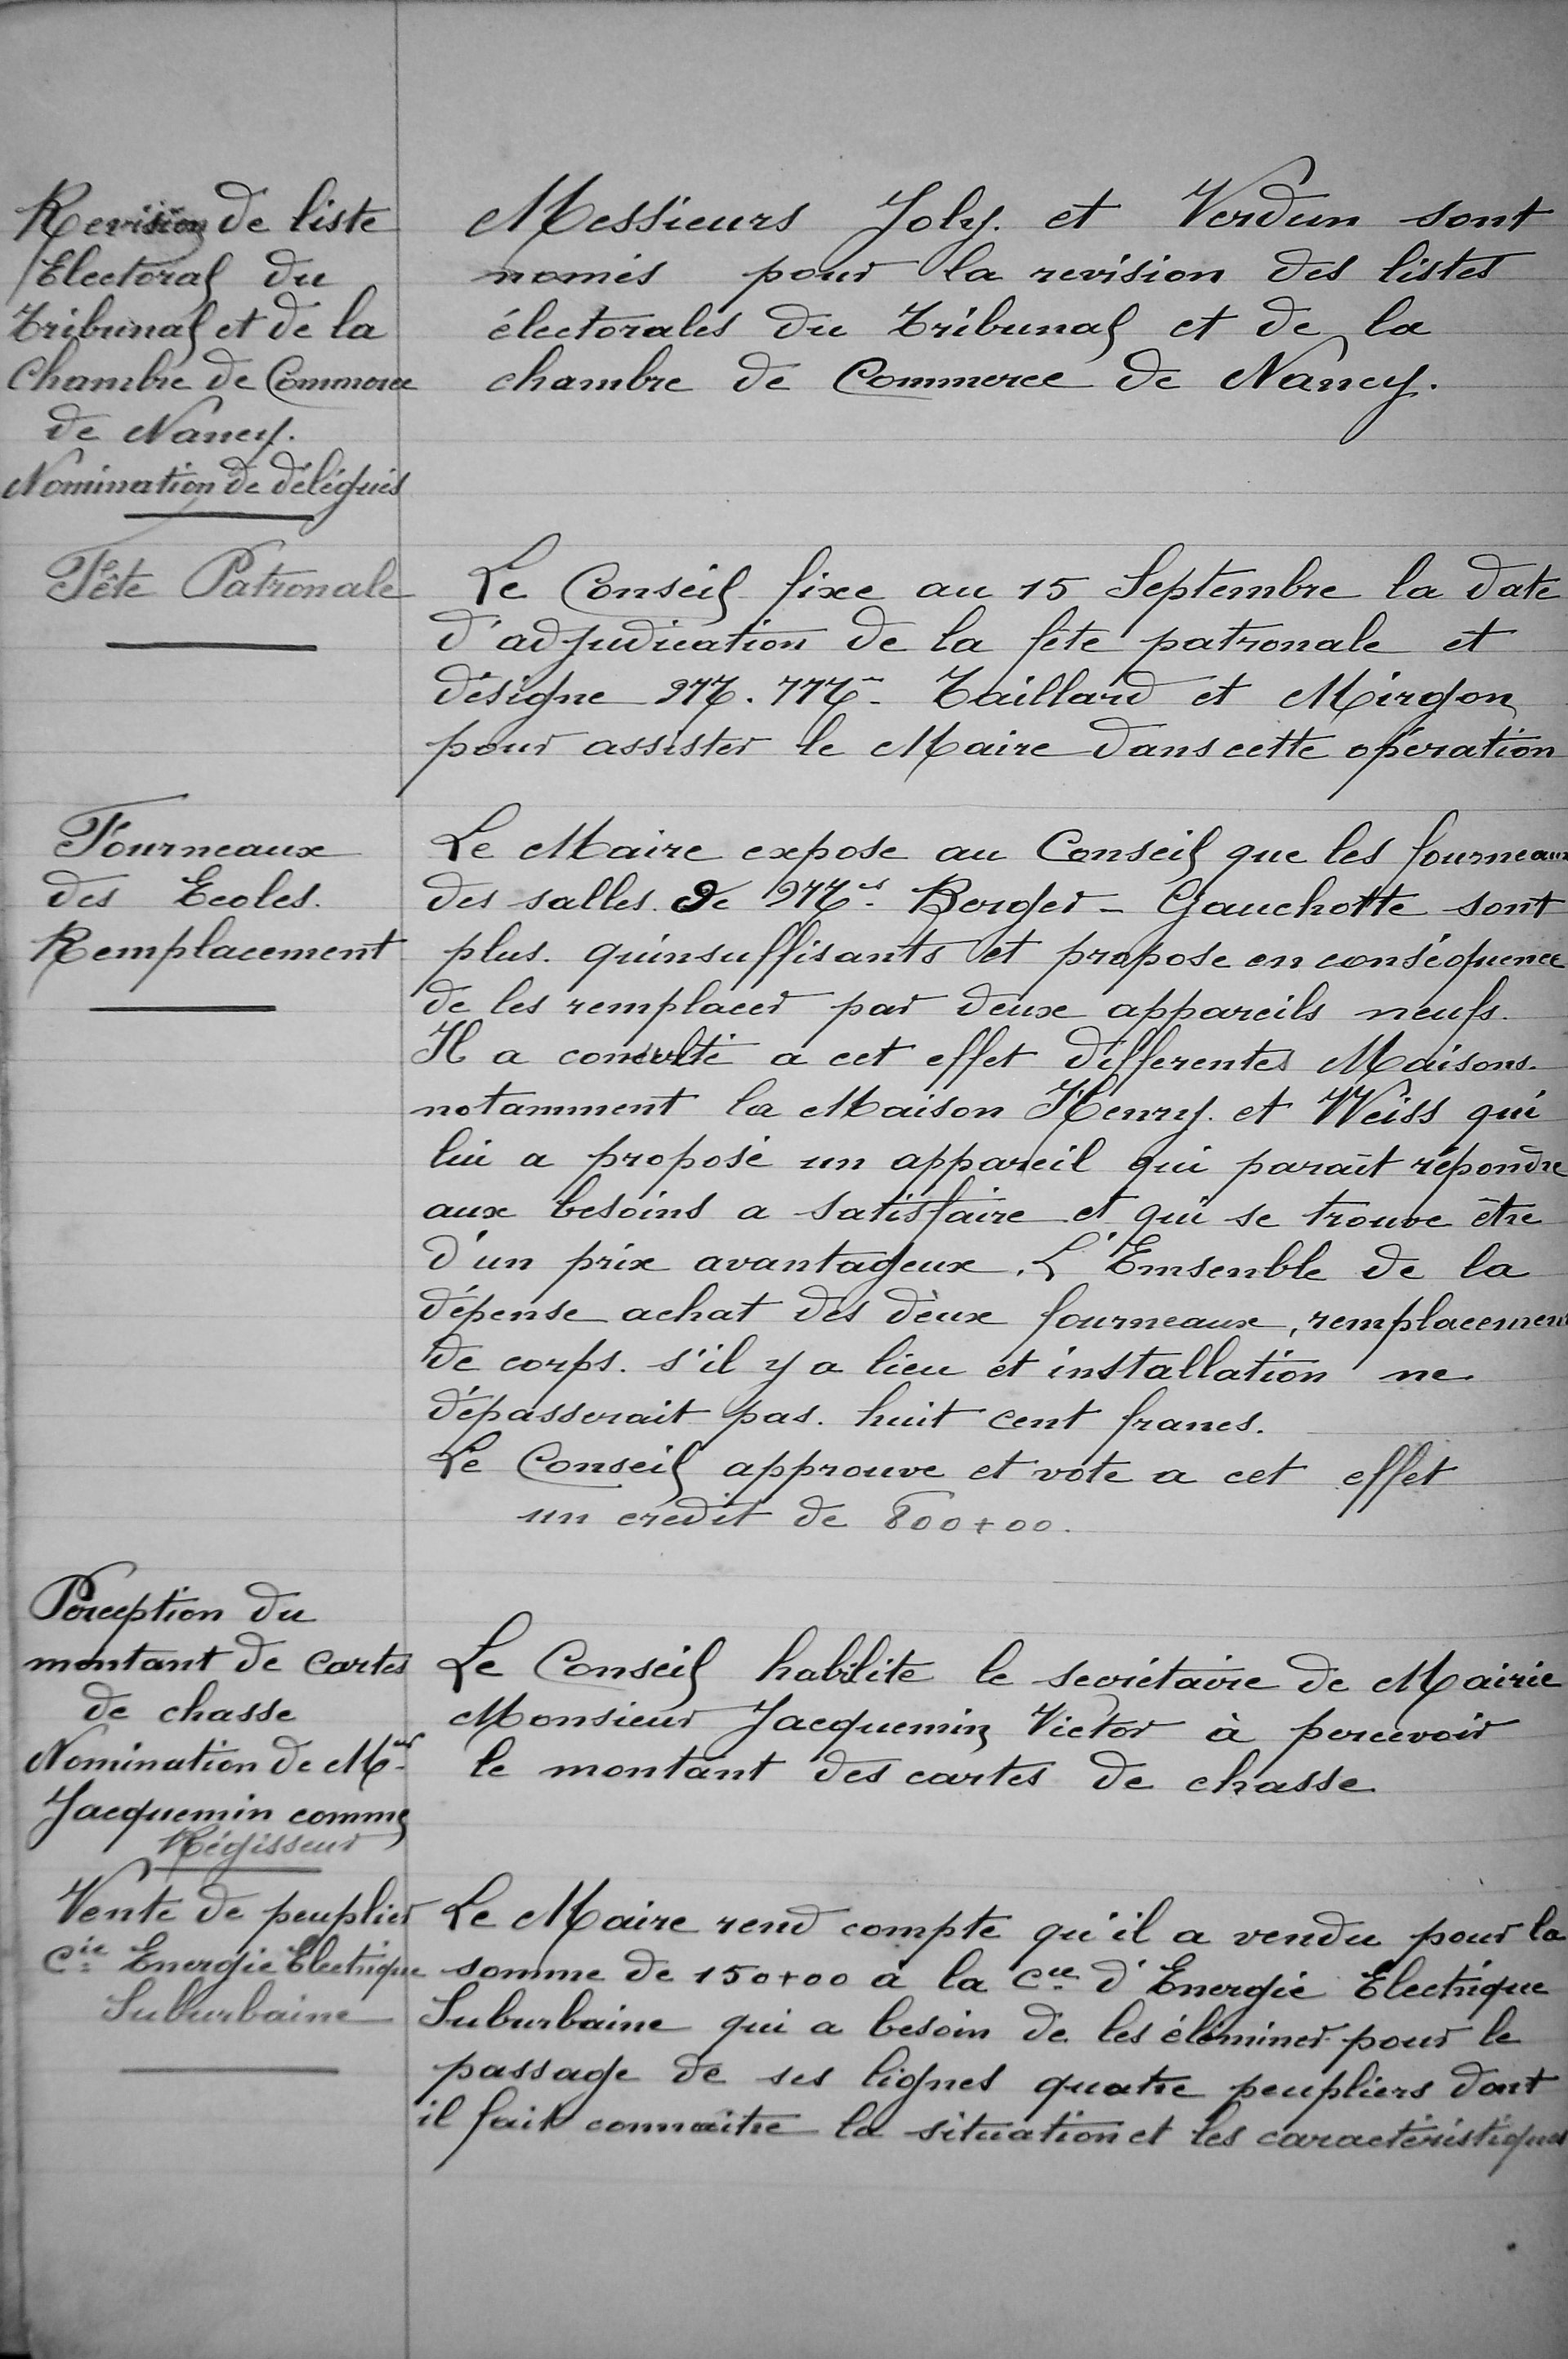 Revision de liste
Electoral du
Tribunal et de la
Chambre de Commerce
de Nancy.
Nomination de délégués
Messieurs Joly. et Verdun sont
només pour la revision des listes
électorales du Tribunal et de la
chambre de Commerce de Nancy.
Fête Patronale
Le Conseil fixe au 15 Septembre la date
d'adjudication de la fête patronale et
désigne M.M. Taillard et Mirgon
pour assister le Maire dans cette opération
Fourneaux
des Ecoles.
Remplacement
Le Maire expose au Conseil que les fourneaux
des salles de Mes. Berger - Gauchotte sont
plus. qu'insuffisants et propose en conséquence
de les remplacer par deux appareils neufs.
Il a consulté a cet effet differentes Maisons.
notamment la Maison Henry. et Weiss qui
lui a proposé un appareil qui parait répondre
aux besoins a satisfaire et qui se trouve être
d'un prix avantageux. L'Emsenble de la
dépense achat des deux fourneaux, remplacement
de corps. s'il y a lieu et installation ne
dépasserait pas. huit cent francs.
Le Conseil approuve et vote a cet effet
un credit de 800+00.
Perception du
montant de cartes
de chasse
Nomination de Mr
Jacquemin comme
Régisseur
Le Conseil habilite le secrétaire de Mairie
Monsieur Jacquemin Victor à percevoir
le montant des cartes de chasse
Vente de peuplier
Cie Energie Electrique
Suburbaine
Le Maire rend compte qu'il a vendu pour la
somme de 150+00 à la Cie d'Energie Electrique
Suburbaine qui a besoin de les éliminer pour le
passage de ses lignes quatre peupliers dont
il fait connaitre la situation et les caractéristiques